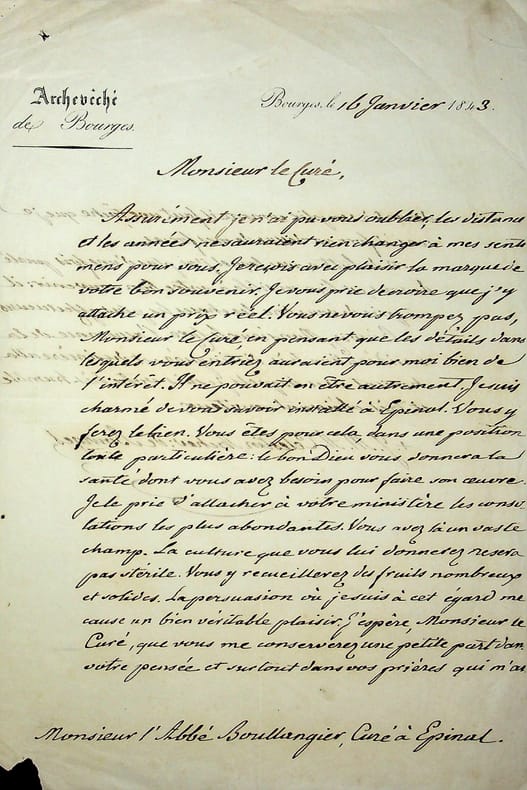 Archevêché
de Bourges.
Bourges, le 16 Janvier 1843.
Monsieur le Curé,
Assurément je n'ai pu vous oublier, les distances
et les années ne sauraient rien changer à mes senti
mens pour vous. Je reçois avec plaisir la marque de
votre bon souvenir. Je vous prie de croire que j'y
attache un prix réel. Vous ne vous trompez pas,
Monsieur le Curé en pensant que les détails dans
lesquels vous entriez auraient pour moi bien de
l'intérêt. Il ne pouvait en être autrement. Je suis
charmé de vous savoir installé à Epinal. Vous y
ferez le bien. Vous êtes pour cela, dans une position
toute particulière : le bon Dieu vous donnera la
santé dont vous avez besoin pour faire son œuvre.
Je le prie d'attacher à votre ministère les conso
lations les plus abondantes. Vous avez là un vaste
champ. La culture que vous lui donnerez ne sera
pas stérile. Vous y recueillerez des fruits nombreux
et solides. La persuasion où je suis à cet égard me
cause un bien véritable plaisir. J'espère, Monsieur le
Curé, que vous me conserverez une petite part dans
votre pensée et surtout dans vos prières qui m'as
Monsieur l'Abbé Boullangier, Curé à Epinal.